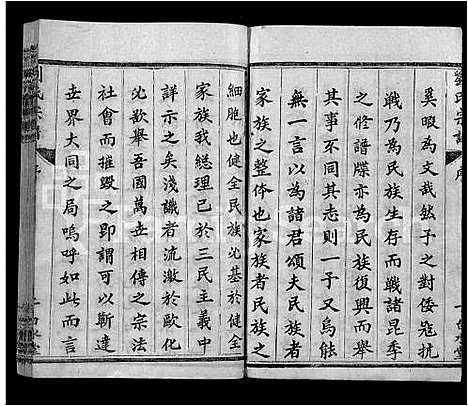 劉氏宗譜
奚暇為文哉然予之對倭寇抗
戰乃為民族生存而戰諸昆季
之修譜牒亦為民族復興而舉
其事不同其志則一予又烏能
無一言以為諸君頌夫民族者
家族之整体也家族者民族之
細胞也健全民族必基於健全
家族我總理已於三民主義中
詳示之矣淺識者流激於歐化
必歡舉吾國萬世相傳之宗法
社會而摧毀之即謂可以蘄達
世界大同之局嗚呼如此而言